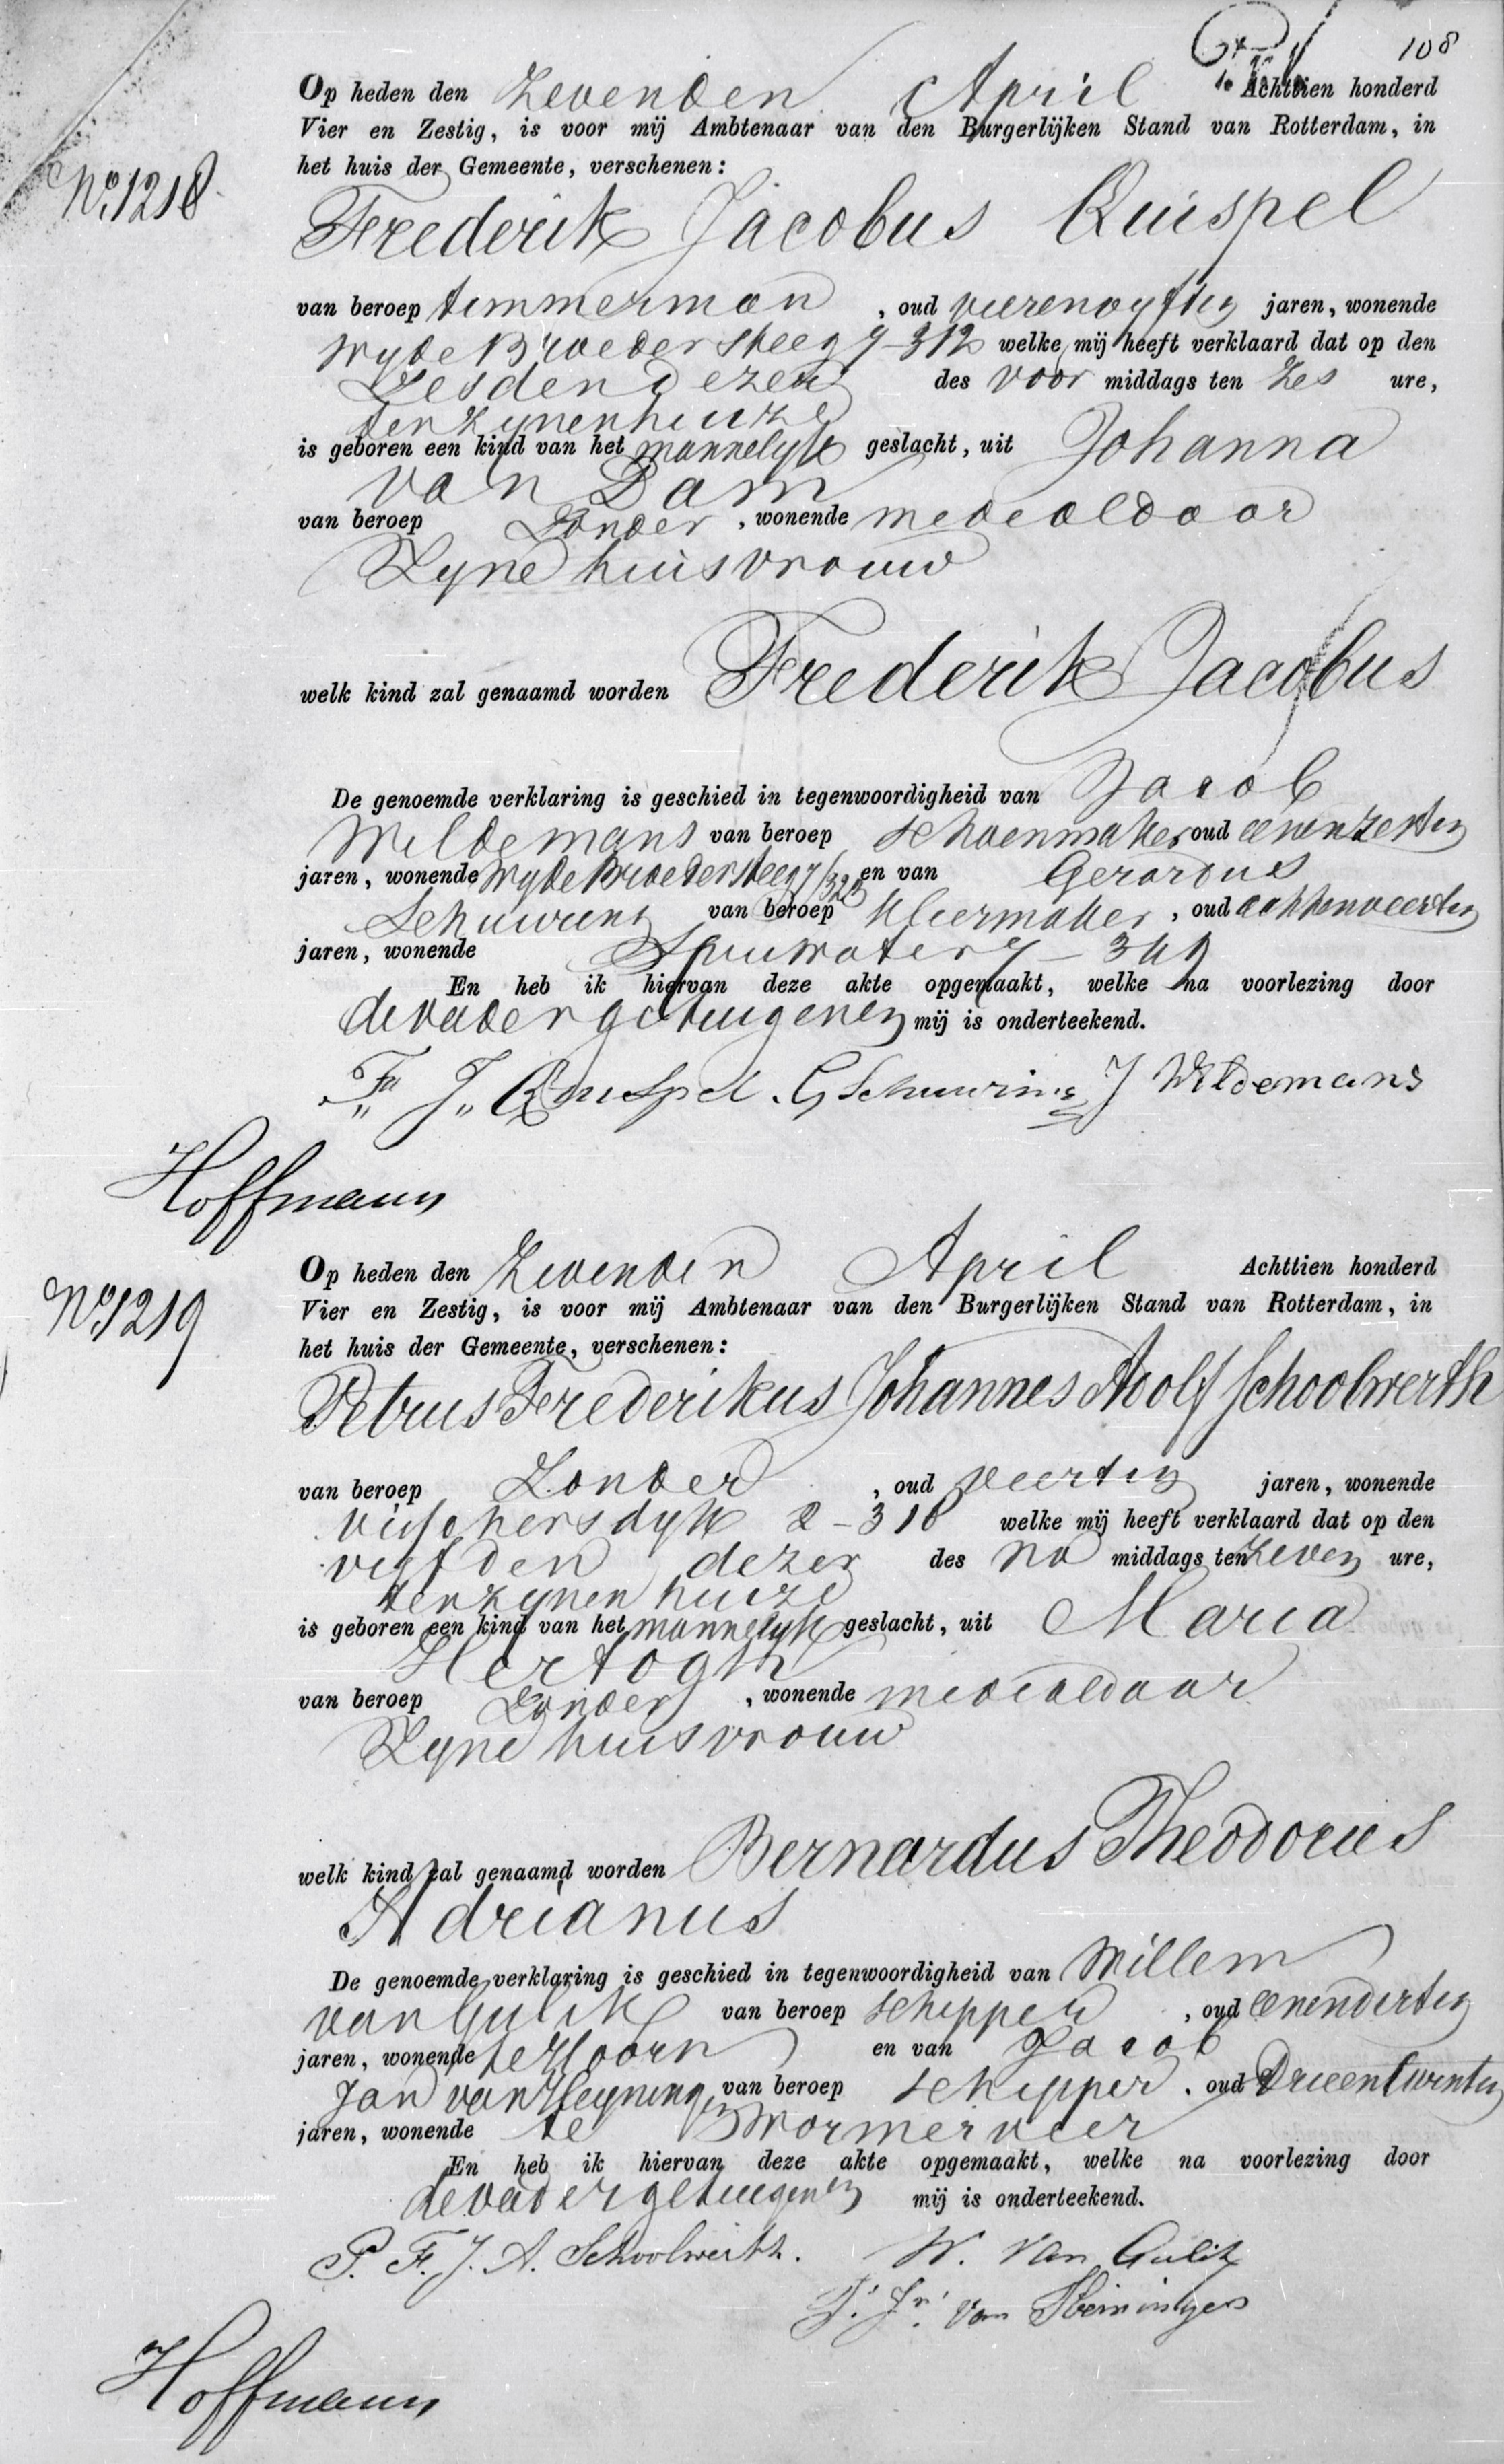 108
Op heden den Zevenden April Achttien honderd
Vier en Zestig, is voor mij Ambtenaar van den Burgerlijken Stand van Rotterdam, in
het huis der Gemeente, verschenen:
No. 1218
Frederik Jacobus Quispel
van beroep timmerman, oud vierenvyftig jaren, wonende
Wyde Broedersteeg 7-312 welke mij heeft verklaard dat op den
Zesden dezer des voor middags ten Zes ure,
ten zynen huize
is geboren een kind van het mannelyk geslacht, uit Johanna
van Dam
van beroep Zonder, wonende mede aldaar
Zyne huisvrouw
welk kind zal genaamd worden Frederik Jacobus
De genoemde verklaring is geschied in tegenwoordigheid van Jacob
Wildemans van beroep schoenmaker oud eenenzestig
jaren, wonende Wyde Broedersteeg 7/325 en van Gerardus
Schuuring van beroep kleermaker, oud achtenveertig
jaren, wonende Spuiwater 7-341
En heb ik hiervan deze akte opgemaakt, welke na voorlezing door
de vader getuigen en mij is onderteekend.
Fr J. Quispel. G Schuuring J Wildemans
Hoffmann
No 1219
Op heden den Zevenden April Achttien honderd
Vier en Zestig, is voor mij Ambtenaar van den Burgerlijken Stand van Rotterdam, in
het huis der Gemeente, verschenen:
Petrus Frederikus Johannes Adolf Schoolwerth
van beroep Zonder, oud veertig jaren, wonende
visschersdyk 2-318 welke mij heeft verklaard dat op den
vyfden dezer des na middags ten Zeven ure,
ten zynen huize
is geboren een kind van het mannelyk geslacht, uit Maria
Hertogh
van beroep Zonder, wonende mede aldaar
Zyne huisvrouw
welk kind zal genaamd worden Bernardus Theodorus
Adrianus
De genoemde verklaring is geschied in tegenwoordigheid van Willem
van Gulik van beroep schipper, oud eenendertig
jaren, wonende te Hoorn en van Jacob
Jan van Heyningen van beroep schipper. oud Drieentwintig
jaren, wonende te Wormerveer
En heb ik hiervan deze akte opgemaakt, welke na voorlezing door
de vader getuigen en mij is onderteekend.
P. F. J. A. Schoolwerth. W. van Gulik
J. Jn. van Heiningen
Hoffmann